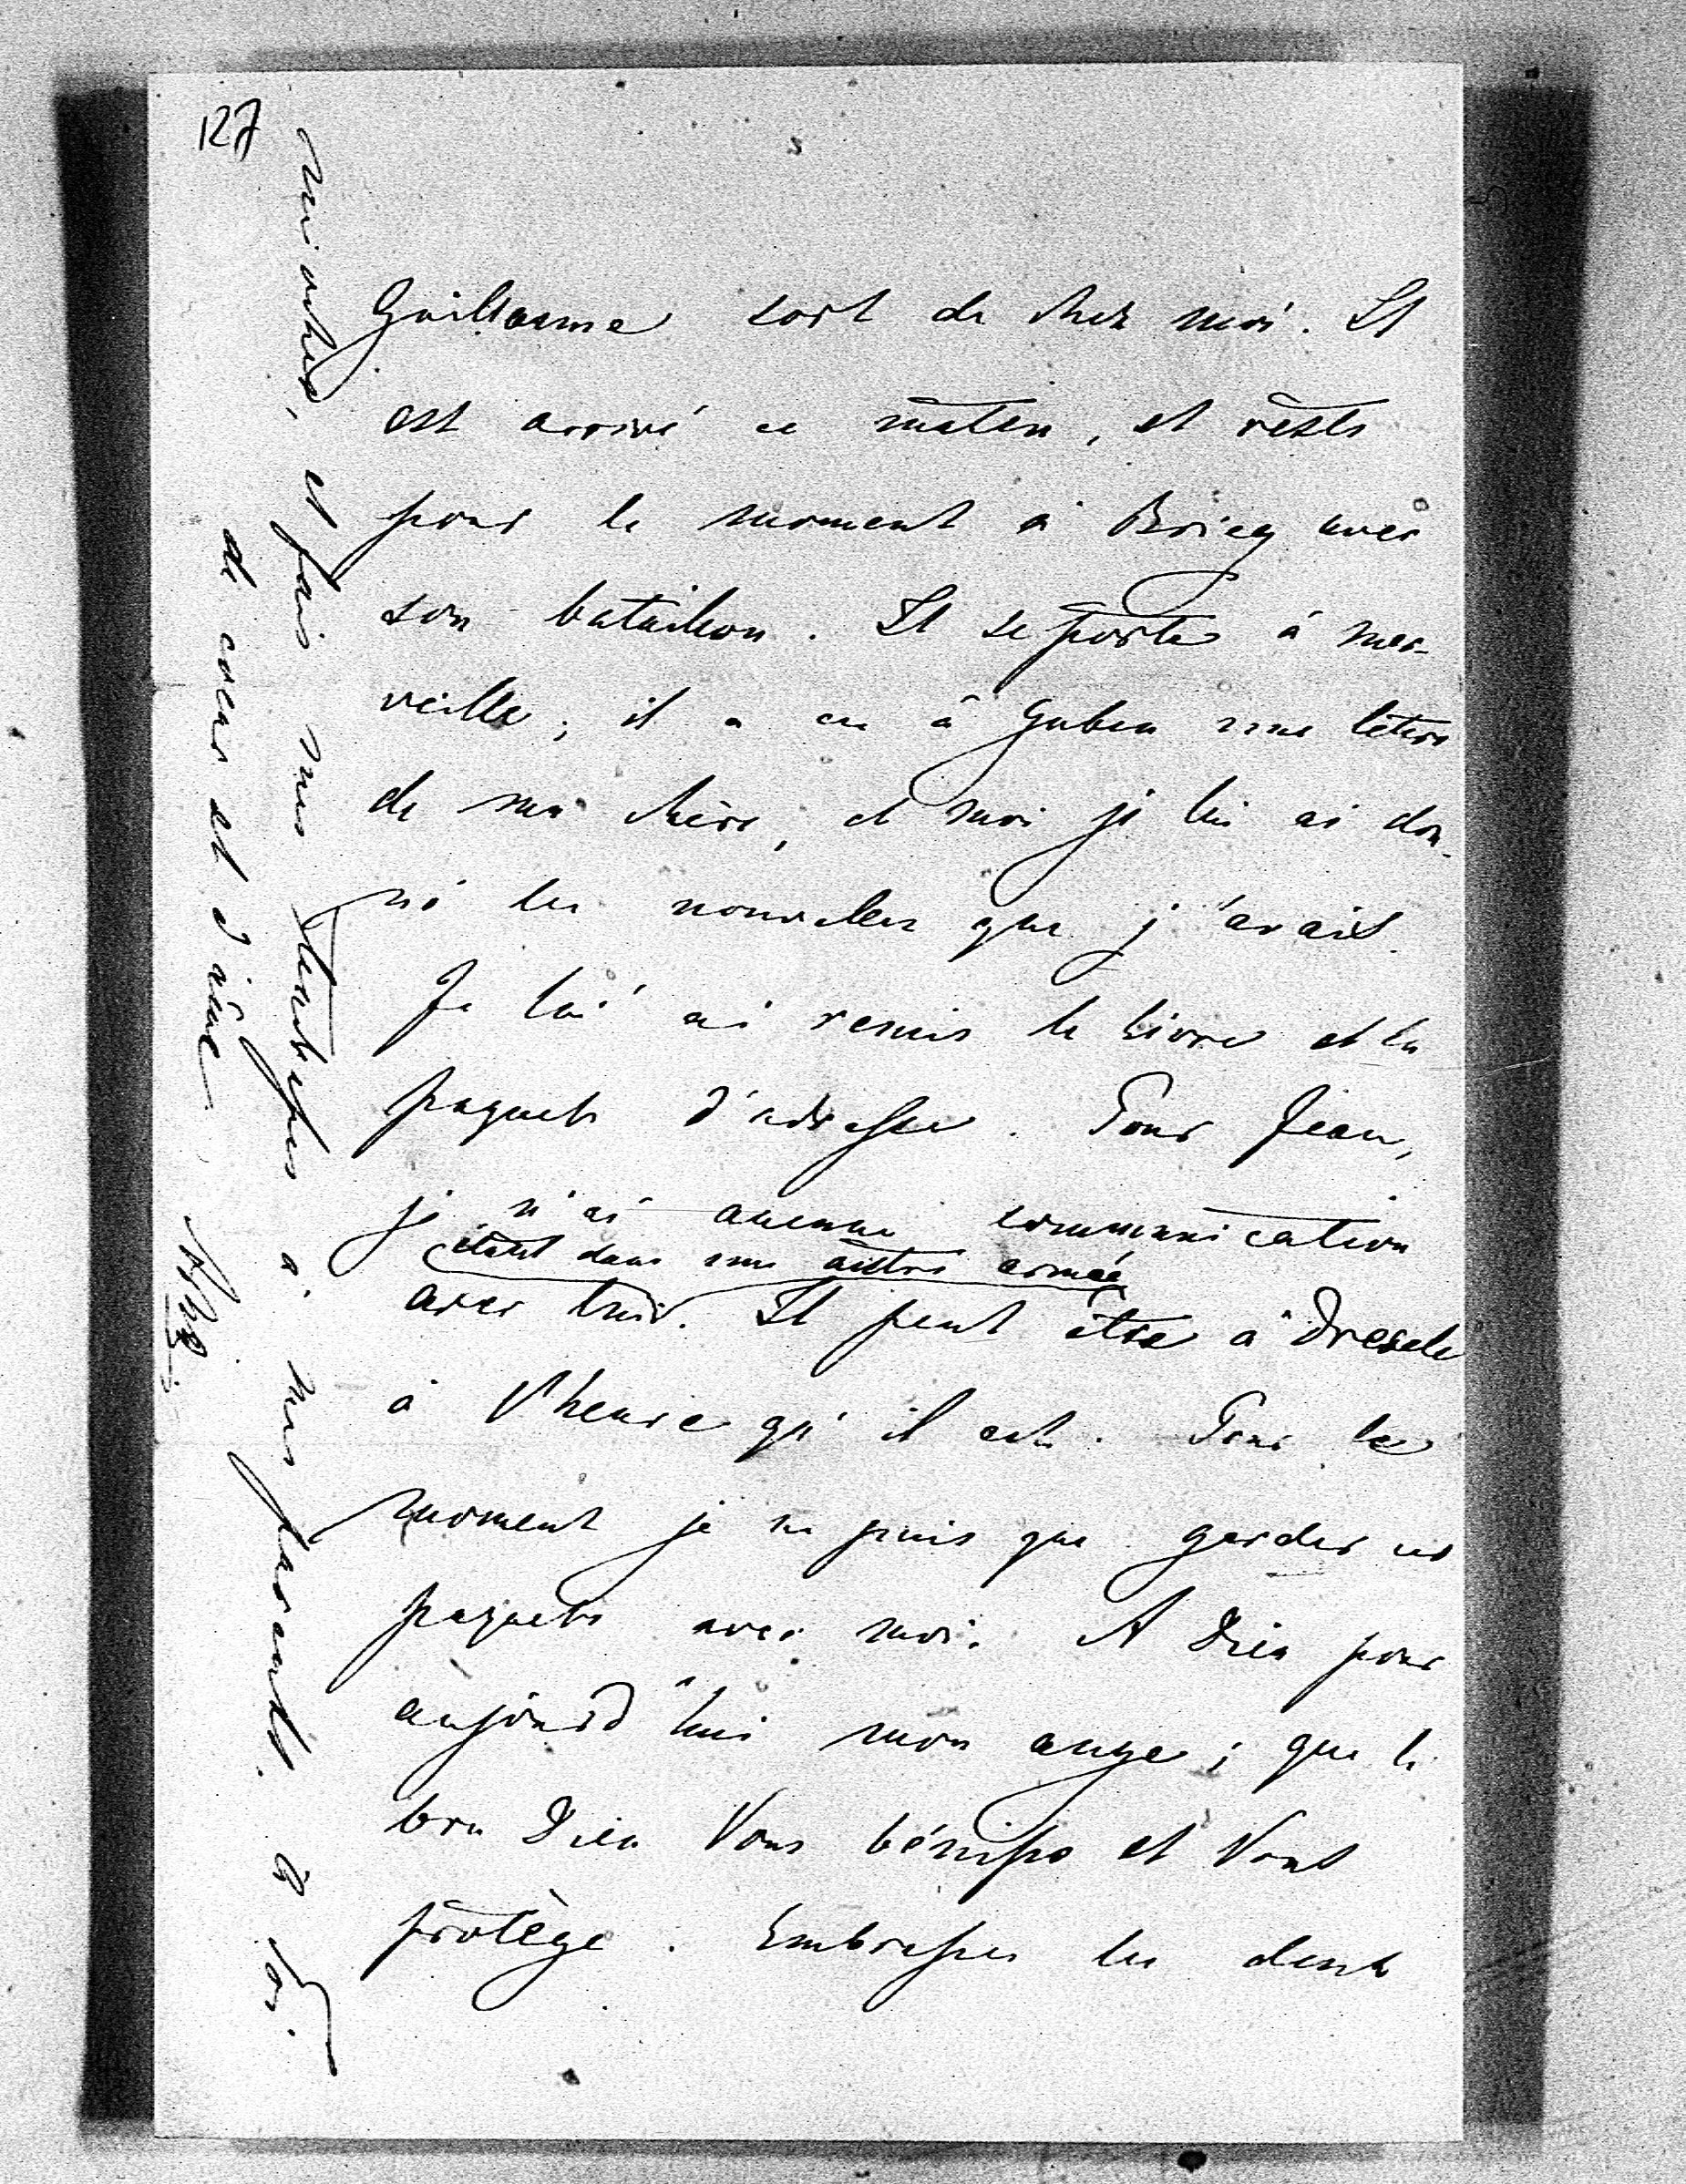 127
Guillaume sort de chez moi. Il
est arrivé ce matin, et reste
pour le moment à Brieg avec
son bataillon. Il se porte à mer-
veille; il a eu à Guben une lettre
de ma chère, et moi je lui ai don-
né les nouvelles que j'avais.
Je lui ai remis le livre et le
paquets d'adresse. Pour Jean,
je n'ai aucune communication
(étant dans une autre armée)
avec lui. Il peut être à Dresde
à l'heure qu'il est. Pour le
moment je ne puis que garder ces
paquets avec moi. A Dieu pour
aujourd'hui mon ange; que le
bon Dieu Vous bénisse et Vous
protège. Embrasses les deux
mioches, et fais mes tendresses à mes parents. à toi
de cœur et d'âme